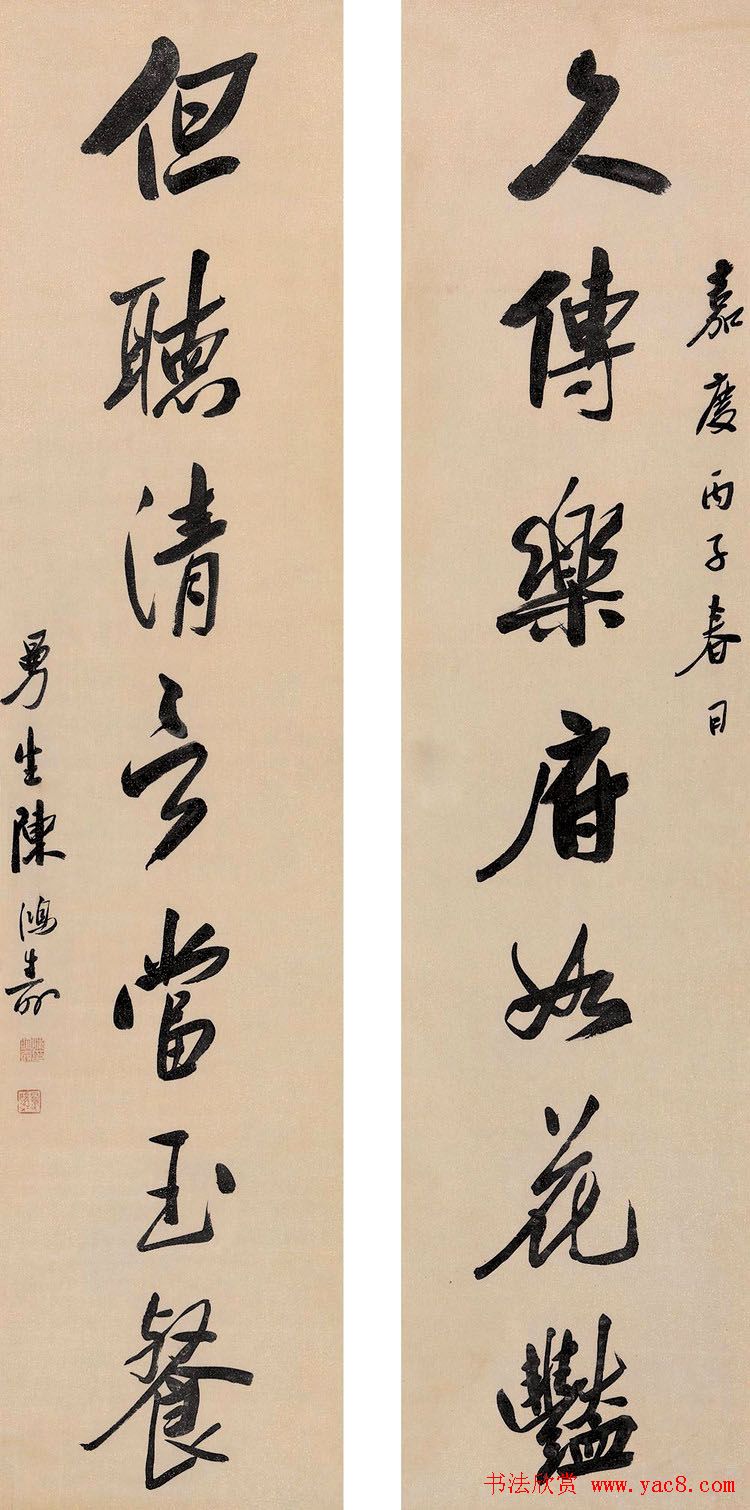 嘉慶丙子春日
久傳樂府如花豔
但聽清言當玉餐
曼生陳鴻壽
书法欣赏 www.yac8.com